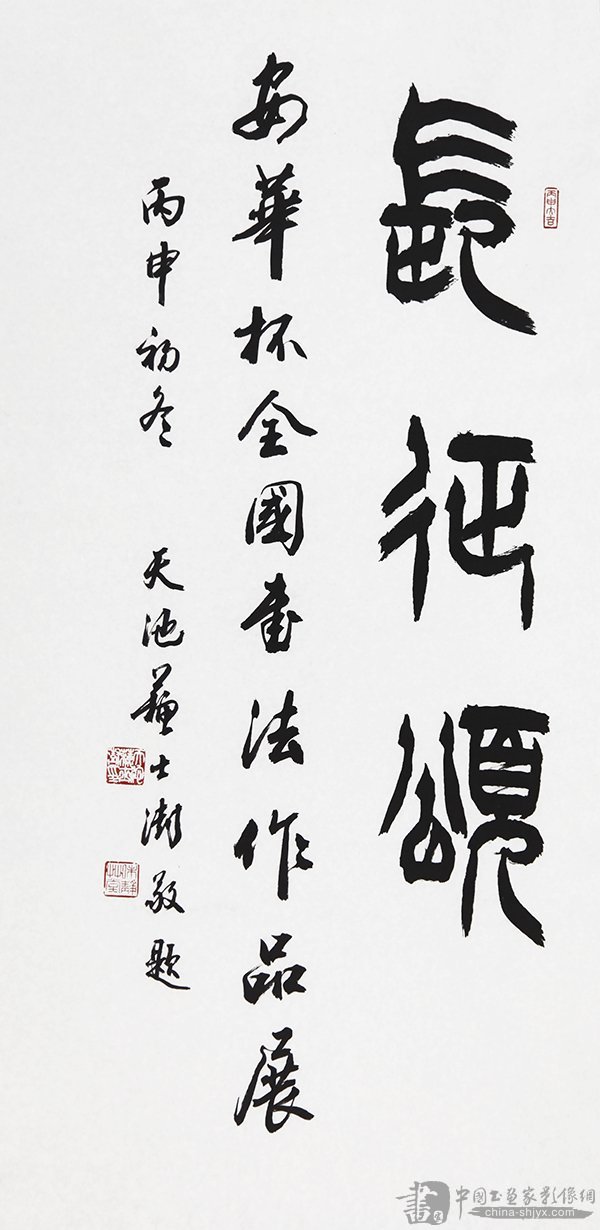 丙申大吉
長征頌
安華杯全國書法作品展
丙申初冬 天池蘇士澍敬題
書
中國书画家影像網
china-shjyx.com